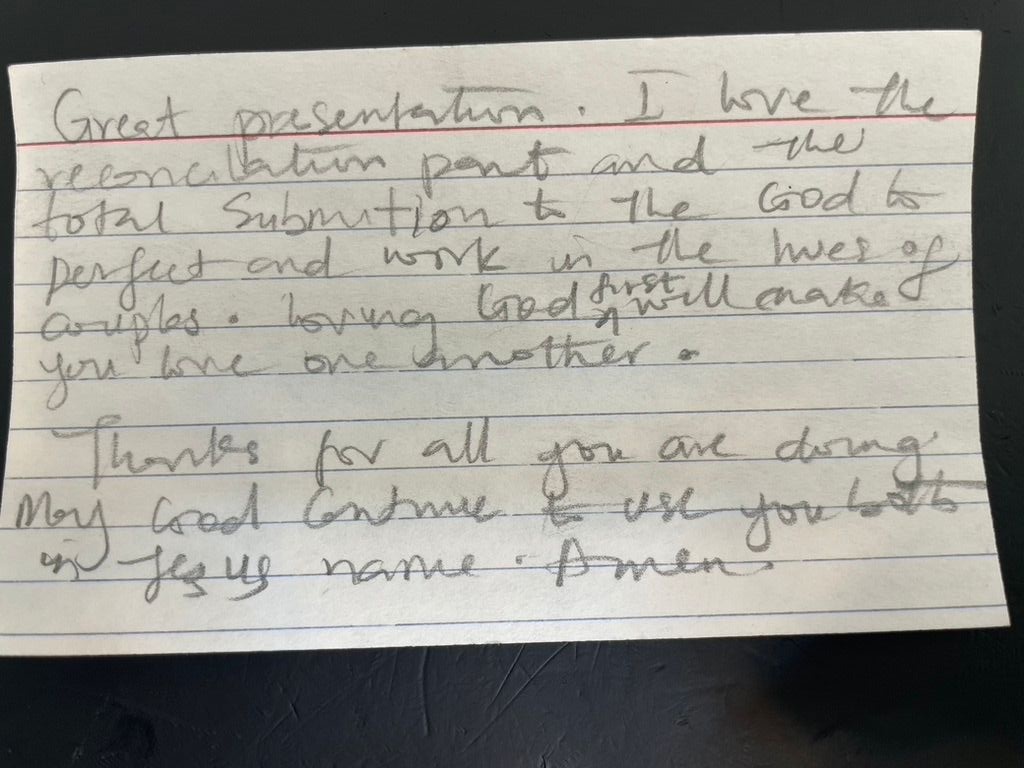 Great presentation. I love the
reconcilation part and the
total Submition to the God to
perfect and work in the lives of
couples. Loving God first will make
you love one another.
Thanks for all you are doing
May God Continue to use you both
in Jesus name. Amen.